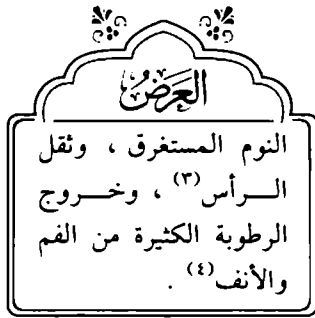 العَرَضُ
النوم المستغرق ، وثقل
الـــرأس (٣) ، وخـــروج
الرطوبة الكثيرة من الفم
والأنف (٤) .